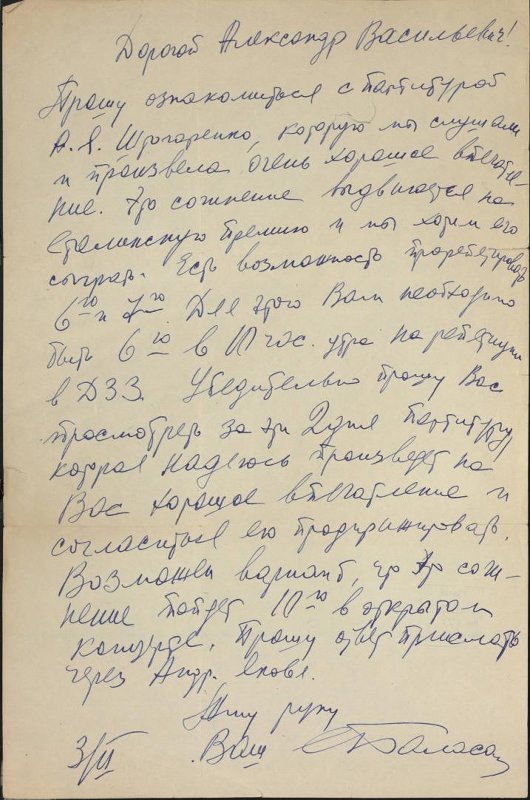 Дорогой Александр Васильевич!
Прошу ознакомиться с партитурой
А. Я. Штогаренко, которую мы слушали
и произвела очень хорошее впечатле
ние. Это сочинение выдвигается на
Сталинскую премию и мы хотим его
сыграть. Есть возможность прорепетировать
6го и 7го. Для этого Вам необходимо
быть 6го в 10 час. утра на репетиции
в ДЗЗ. Убедительно прошу Вас
просмотреть за эти 2 дня партитуру,
которая надеюсь произведет на
Вас хорошее впечатление и
согласиться ею продирижировать.
Возможен вариант, что это сочи-
нение пойдет 10го в открытом
концерте. Прошу ответ прислать
через Андр.
Жму руку
3/II Ваш С Баласан